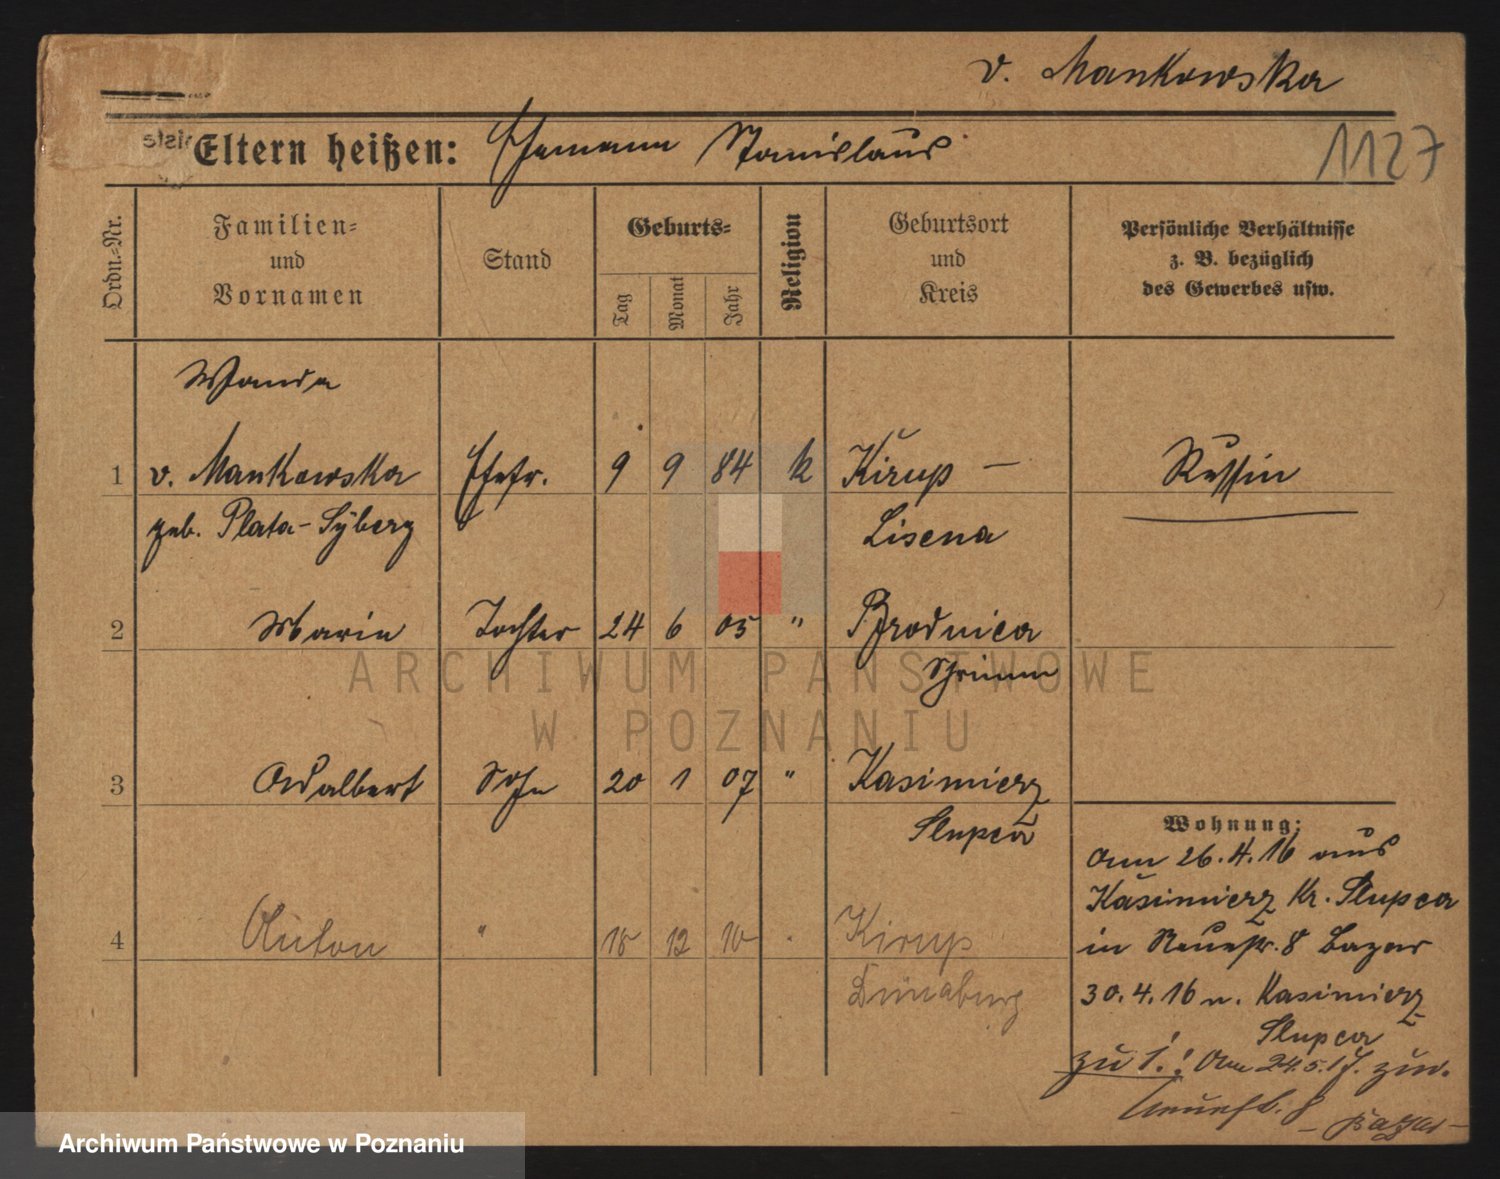 v. Mankowska
Eltern heißen: Ehemann Stanislaus
1127
Ordn.-Nr.
Familien-
und
Vornamen
Stand
Geburts-
Tag
Monat
Jahr
Religion
Geburtsort
und
Kreis
Persönliche Verhältnisse
z. B. bezüglich
des Gewerbes usw.
Wanda
1 v. Mankowska Ehefr. 9 9 84 k Kirup – Russin
geb. Plata-Syberg Lisena
2 Marie Tochter 24 6 05 " Brodnica
Schrimm
3 Adalbert Sohn 20 1 07 " Kasimierz
Slupca
Wohnung:
Am 26.4.16 aus
Kasimierz Kr. Slupca
4 Anton " 18 12 10 Kirup
in Neuestr. 8 Bazar
Dünaburg
30.4.16 n. Kasimierz
Slupca
zu 1.! Am 24.5.17. zur.
Neuestr. 8
– Bazar –
ARCHIWUM PAŃSTWOWE
W POZNANIU
Archiwum Państwowe w Poznaniu